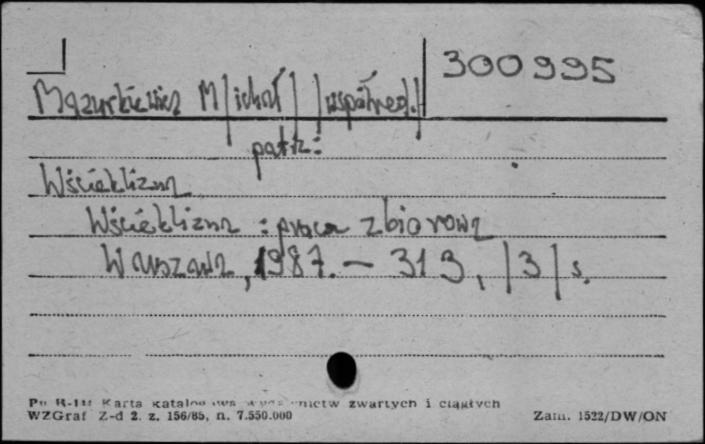 300995
Mazurkiewicz M/ichał/ /współred./
patrz:
Wścieklizna
Wścieklizna : praca zbiorowa
Warszawa, 1987. — 313, /3/ s.
Karta wydawnictw zwartych i ciągłych
WZGraf Z-d 2. z. 156/85, n. 7.550.000 Zam. 1522/DW/ON